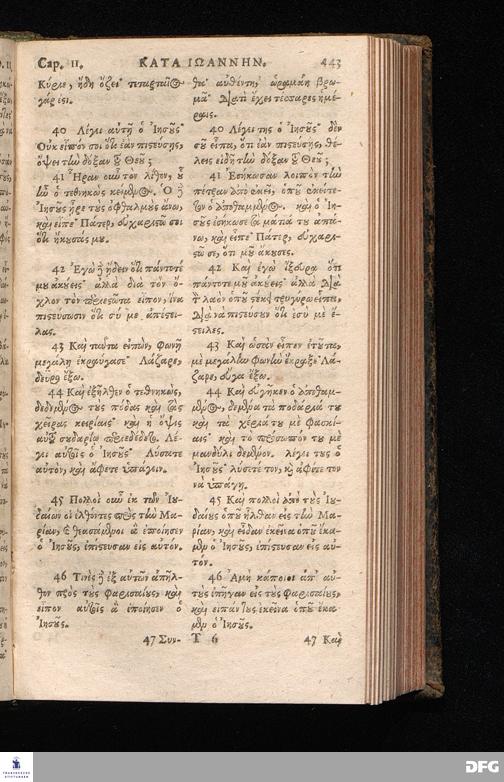 Cap. II. ΚΑΤΑ ΙΩΑΝΝΗΝ. 443
Κύριε, ἤδη ὄζει· τεταρταῖος
γάρ ἐστι.
40 Λέγει αὐτῇ ὁ Ἰησοῦς·
Οὐκ εἶπόν σοι ὅτι ἐὰν πιστεύσῃς,
ὄψει τὴν δόξαν τοῦ Θεοῦ;
41 Ἦραν οὖν τὸν λίθον, οὗ
ἦν ὁ τεθνηκὼς κείμενος. Ὁ δὲ
Ἰησοῦς ἦρε τοὺς ὀφθαλμοὺς ἄνω,
καὶ εἶπε· Πάτερ, εὐχαριστῶ σοι
ὅτι ἤκουσάς μου.
42 Ἐγὼ δὲ ᾔδειν ὅτι πάντοτέ
μου ἀκούεις· ἀλλὰ διὰ τὸν ὄ-
χλον τὸν περιεστῶτα εἶπον, ἵνα
πιστεύσωσιν ὅτι σύ με ἀπέστει-
λας.
43 Καὶ ταῦτα εἰπὼν, φωνῇ
μεγάλῃ ἐκραύγασε· Λάζαρε,
δεῦρο ἔξω.
44 Καὶ ἐξῆλθεν ὁ τεθνηκὼς,
δεδεμένος τοὺς πόδας καὶ τὰς
χεῖρας κειρίαις· καὶ ἡ ὄψις
αὐτοῦ σουδαρίῳ περιεδέδετο. Λέ-
γει αὐτοῖς ὁ Ἰησοῦς· Λύσατε
αὐτὸν, καὶ ἄφετε ὑπάγειν.
45 Πολλοὶ οὖν ἐκ τῶν Ἰου-
δαίων οἱ ἐλθόντες πρὸς τὴν Μα-
ρίαν, καὶ θεασάμενοι ἃ ἐποίησεν
ὁ Ἰησοῦς, ἐπίστευσαν εἰς αὐτόν.
46 Τινὲς δὲ ἐξ αὐτῶν ἀπῆλ-
θον πρὸς τοὺς Φαρισαίους, καὶ
εἶπον αὐτοῖς ἃ ἐποίησεν ὁ
Ἰησοῦς.
47 Συν-
αὐθέντη, βρω-
μᾶ· διατὶ ἔχει τέσσαρες ἡμέ-
ραις.
40 Λέγει της ὁ Ἰησοῦς· δὲν
σοῦ εἶπα, ὅτι ἐὰν πιστεύσῃς, θέ-
λεις εἰδῆ τὴν δόξαν τοῦ Θεοῦ;
41 Ἐσήκωσαν λοιπὸν τὴν
πέτραν ἀπὸ ἐκεῖ, ὁποῦ ἐκείτε-
τον ὁ ἀποθαμμένος. καὶ ὁ Ἰη-
σοῦς ἐσήκωσε τὰ μάτιά του ἀπά-
νω, καὶ εἶπε· Πάτερ, εὐχαρι-
στῶ σε, ὅτι μοῦ ἄκουσες.
42 Καὶ ἐγὼ ἤξευρα ὅτι
πάντοτε μοῦ ἀκούεις· ἀλλὰ διὰ
τὸν λαὸν ὁποῦ στέκει τριγύρω εἶπα,
διὰ νὰ πιστεύσουν ὅτι ἐσύ με ἔ-
στειλες.
43 Καὶ ὡσὰν εἶπεν ἐτοῦτα,
μὲ μεγάλην φωνὴν ἔκραξε· Λά-
ζαρε, εὔγα ἔξω.
44 Καὶ εὐγῆκεν ὁ ἀποθαμ-
μένος, δεμένα τὰ ποδάριά του
καὶ τὰ χέριά του μὲ φασκί-
αις· καὶ τὸ πρόσωπόν του μὲ
μανδύλι δεμένον. λέγει τους ὁ
Ἰησοῦς· λύσετέ τον, καὶ ἀφέτε τον
νὰ ὑπάγῃ.
45 Καὶ πολλοὶ ἀπὸ τοὺς Ἰου-
δαίους ὁποῦ ἦλθαν εἰς τὴν Μα-
ρίαν, καὶ εἶδαν ἐκεῖνα ὁποῦ ἔκα-
μεν ὁ Ἰησοῦς, ἐπίστευσαν εἰς αὐ-
τόν.
46 Ἀμὴ κάποιοι ἀπ' αὐ-
τοὺς ἐπῆγαν εἰς τοὺς Φαρισαίους,
καὶ εἶπάν τους ἐκεῖνα ὁποῦ ἔκα-
μεν ὁ Ἰησοῦς.
T 6 47 Καὶ
DFG